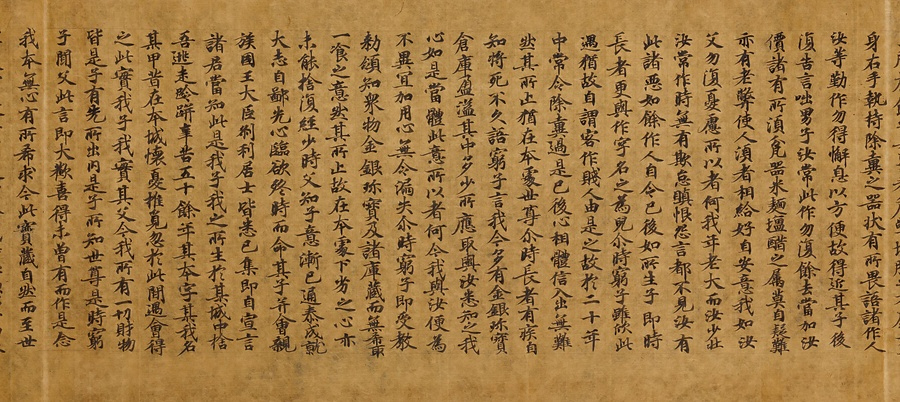 身右手執持除糞之器狀有所畏語諸作人
汝等勤作勿得懈息以方便故得近其子後
復告言咄男子汝常此作勿復餘去當加汝
價諸有所須瓫器米麵鹽醋之屬莫自疑難
亦有老弊使人須者相給好自安意我如汝
父勿復憂慮所以者何我年老大而汝少壯
汝常作時無有欺怠瞋恨怨言都不見汝有
此諸惡如餘作人自今已後如所生子即時
長者更與作字名之為兒尒時窮子雖欣此
遇猶故自謂客作賤人由是之故於二十年
中常令除糞過是已後心相體信入出無難
然其所止猶在本處世尊尒時長者有疾自
知將死不久語窮子言我今多有金銀珍寶
倉庫盈溢其中多少所應取與汝悉知之我
心如是當體此意所以者何今我與汝便為
不異宜加用心無令漏失尒時窮子即受教
勑領知衆物金銀珎寶及諸庫藏而無希取
一飡之意然其所止故在本處下劣之心亦
未能捨復經少時父知子意漸已通泰成就
大志自鄙先心臨欲終時而命其子并會親
族國王大臣刹利居士皆悉已集即自宣言
諸君當知此是我子我之所生於某城中捨
吾逃走跉跰辛苦五十餘年其本字某我名
某甲昔在本城懷憂推覓忽於此間遇會得
之此實我子我實其父今我所有一切財物
皆是子有先所出內是子所知世尊是時窮
子聞父此言即大歡喜得未曾有而作是念
我本無心有所希求今此寶藏自然而至世